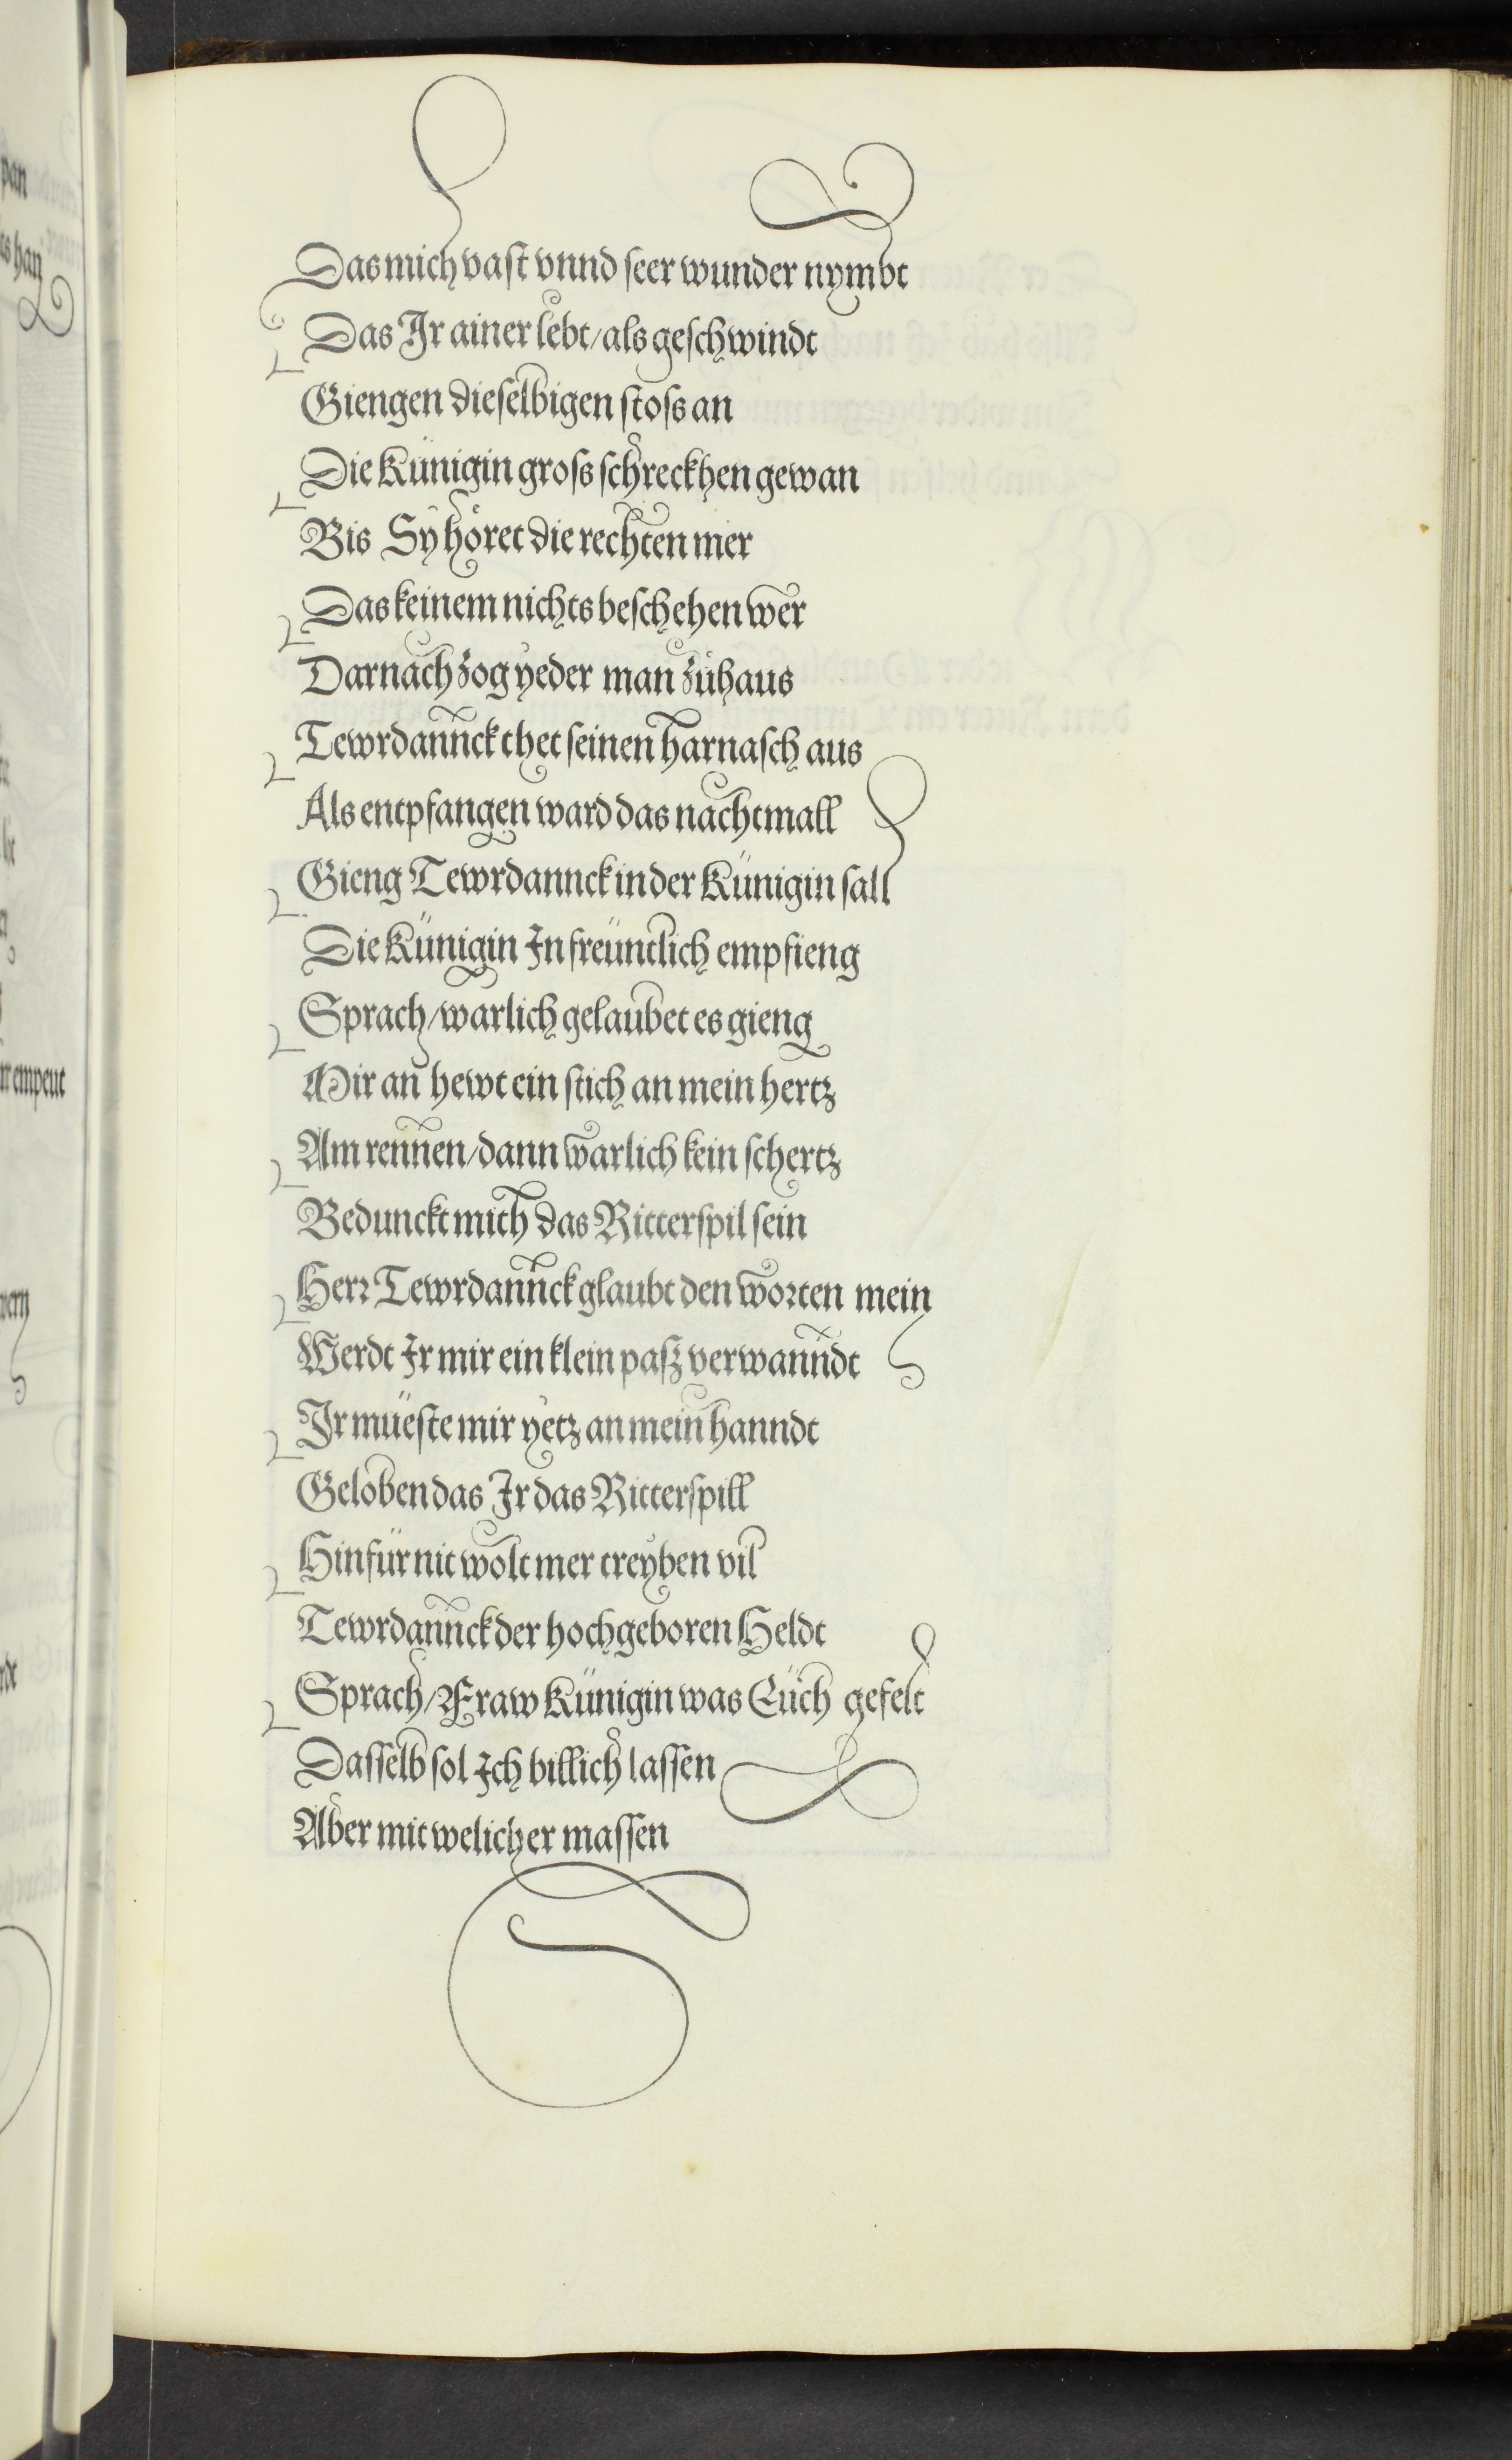 Das mich vast vnnd seer wunder nymbt
Das Jr ainer lebt/als geschwindt
Giengen dieselbigen stoss an
Die Künigin gross schreckhen gewan
Bis Sy höret die rechten mer
Das keinem nichts beschehen wer
Darnach zog yeder man zůhaus
Tewrdannck thet seinen harnasch aus
Als entpfangen ward das nachtmall
Gieng Tewrdannck in der Künigin sall
Die Künigin In freündlich empfieng
Sprach/warlich gelaubet es gieng
Mir an hewt ein stich an mein hertz
Am rennen/dann warlich kein schertz
Bedunckt mich das Ritterspil sein
Herr Tewrdannck glaubt den worten mein
Werdt Ir mir ein klein pasz verwanndt
Jr müeste mir yetz an mein hanndt
Geloben das Ir das Ritterspill
Hinfür nit wolt mer treyben vil
Tewrdannck der hochgeboren Heldt
Sprach/Fraw Künigin was Eüch gefelt
Dasselb sol Ich billich lassen
Aber mit welicher massen